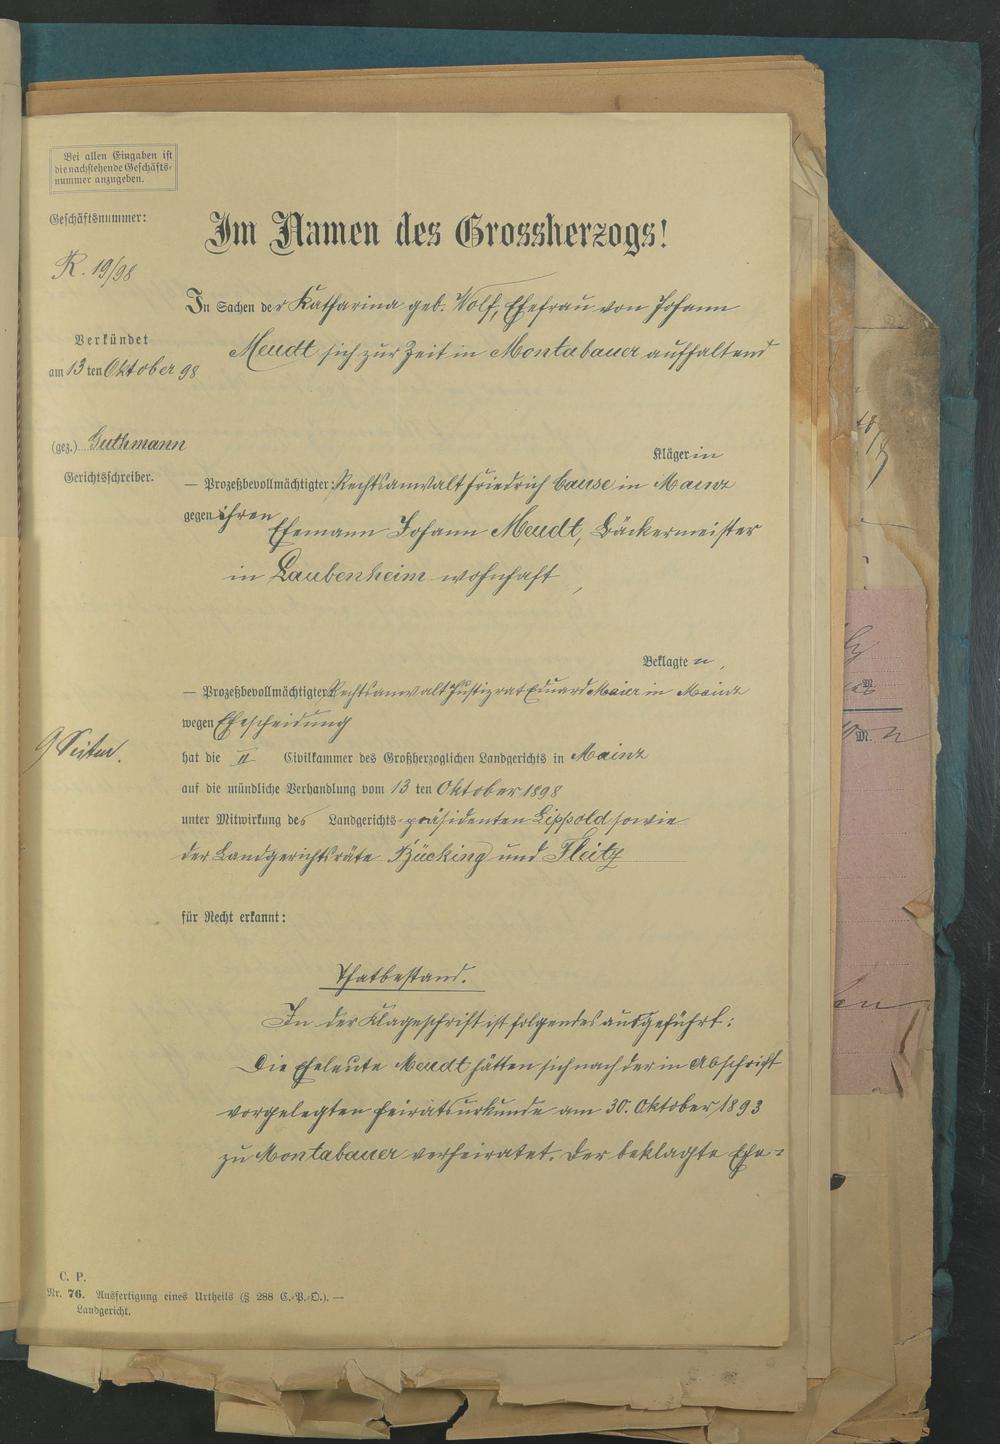 Bei allen Eingaben ist
die nachstehende Geschäfts-
nummer anzugeben.
Geschäftsnummer:
R. 19/98
Im Namen des Grossherzogs!
In Sachen der Katharina geb. Wolf, Ehefrau von Johann
Meudt sich zur Zeit in Montabauer aufhaltend
Verkündet
am 13 ten Oktober 98
(gez.) Guthmann
Gerichtsschreiber.
Klägerin
— Prozeßbevollmächtigter: Rechtsanwalt Friedrich Cause in Mainz
gegen ihren
Ehemann Johann Meudt, Bäckermeister
in Laubenheim wohnhaft,
Beklagten,
— Prozeßbevollmächtigter Rechtsanwalt Justizrat Eduard Maier in Mainz
wegen Ehescheidung
9 Seiten.
hat die II Civilkammer des Großherzoglichen Landgerichts in Mainz
auf die mündliche Verhandlung vom 13 ten Oktober 1898
unter Mitwirkung des Landgerichts-präsidenten Lippold sowie
der Landgerichtsräte Bücking und
für Recht erkannt:
Thatbestand.
In der Klageschrift ist folgendes ausgeführt:
Die Eheleute Meudt hätten sich nach der in Abschrift
vorgelegten Heiratsurkunde am 30. Oktober 1893
zu Montabauer verheiratet. Der beklagte Ehe-
C. P.
Nr. 76. Ausfertigung eines Urtheils (§ 288 C.-P.-O.). —
Landgericht.